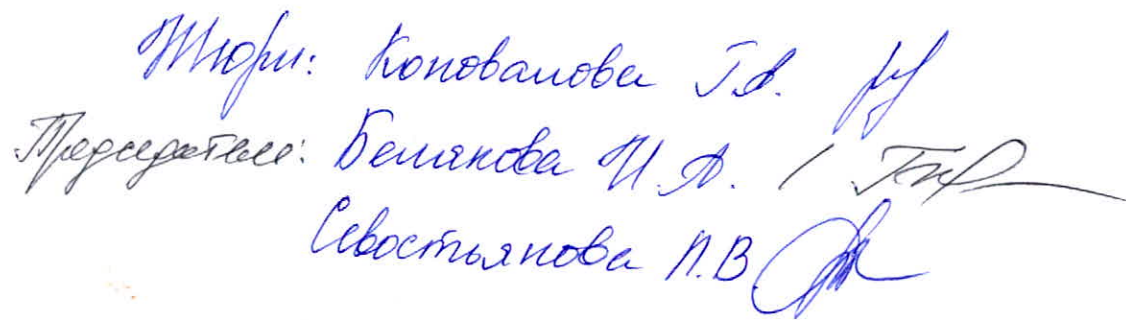 Жюри: Коновалова Г.А.
Председатель: Белякова И.А. /
Севостьянова Л.В